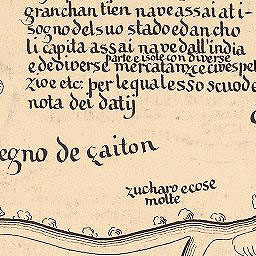 granchan tien nave assai at i-
sogno del suo stado ed ancho
li capita assai nave dall'india
parte e isole con diverse
e de diverse merchatanz ce civespel
zioe etc: per le qual esso scuode
nota dei datij
egno de çaiton
zucharo e cose
molte